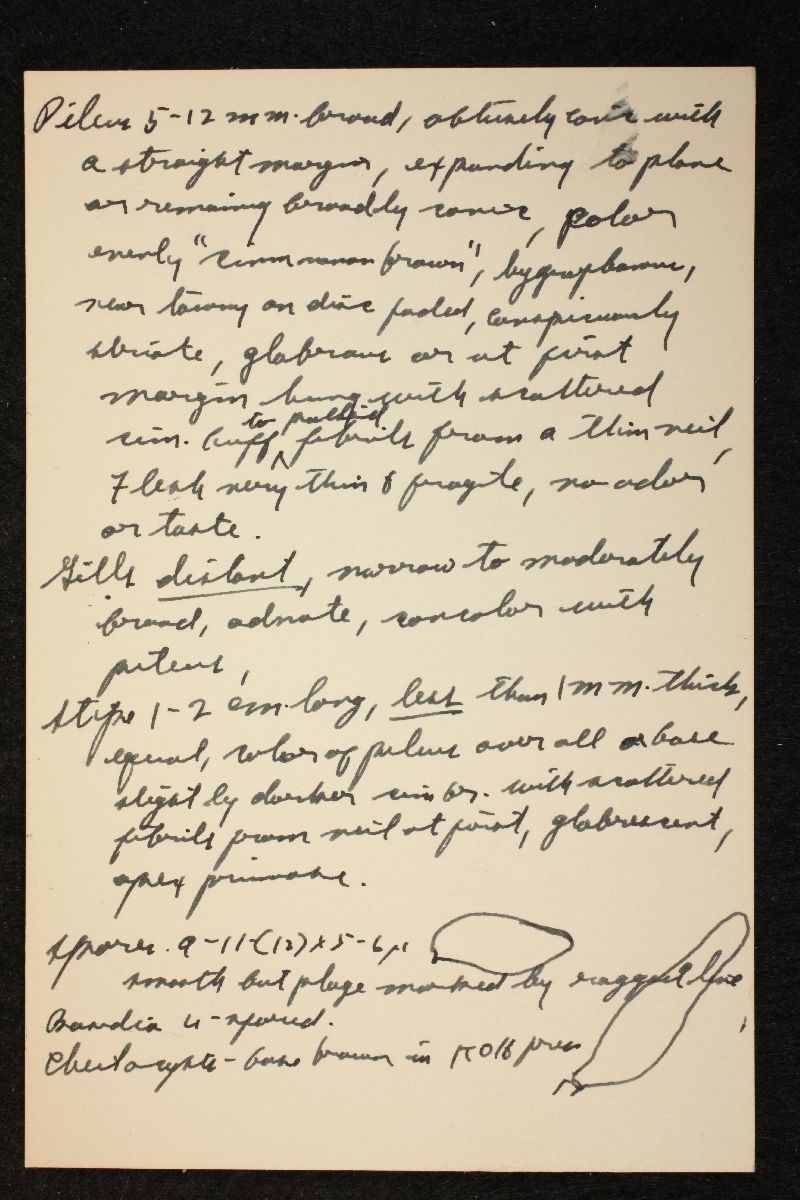 Pileus 5-12 mm. broad, obtusely conic with
a straight margin, expanding to plane
or remaining broadly conic, color
evenly "cinnamon brown", hygrophanous,
near tawny on disc faded, conspicuously
striate, glabrous or at first
margin hung with scattered
to pallid
cin. buff ^ fibrils from a thin veil,
Flesh very thin & fragile, no odor
or taste.
Gills distant, narrow to moderately
broad, adnate, concolor with
pileus,
Stipe 1-2 cm. long, less than 1 mm. thick,
equal, color of pileus over all or base
slightly darker cin br. with scattered
fibrils from veil at first, glabrescent,
apex pruinose.
Spores. 9-11-(12) x 5-6 µ
smooth but plage marked by ragged line
Basidia 4-spored.
Cheilocysts - base brown in KOH